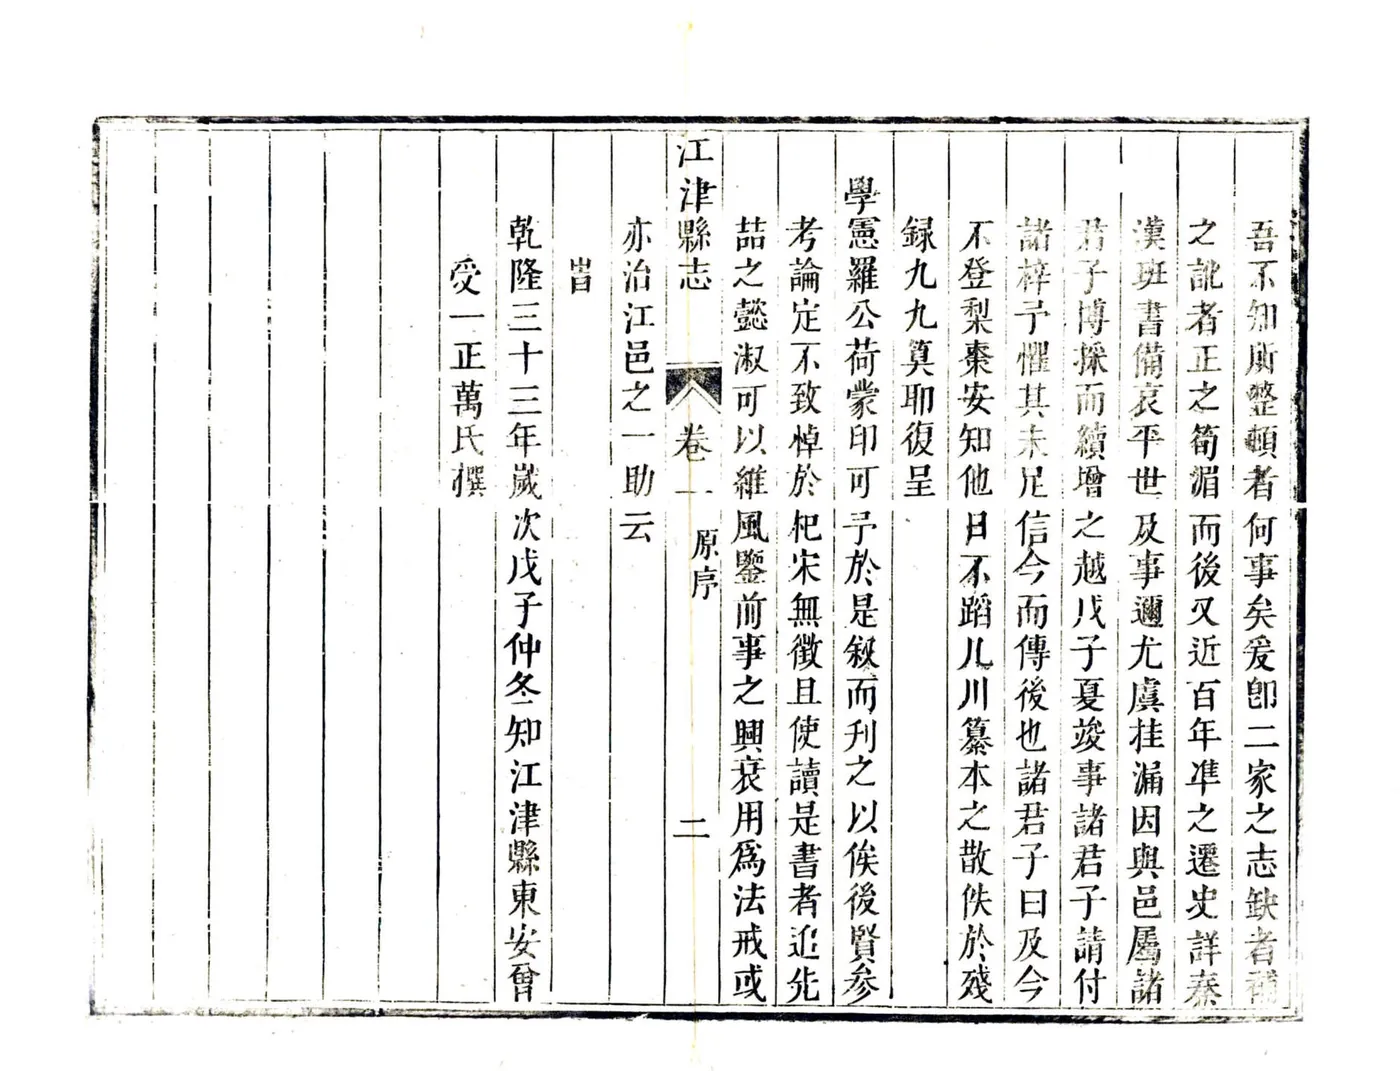 吾不知所整頓者何事矣爰卽二家之志缺者補
之訛者正之筍湄而後又近百年準之遷史詳秦
漢班書備哀平世及事邇尤虞挂漏因與邑屬諸
君子博採而續增之越戊子夏竣事諸君子請付
諸梓予懼其未足信今而傳後也諸君子曰及今
不登梨棗安知他日不蹈几川纂本之散佚於殘
録九九算耶復呈
學憲羅公荷蒙印可予於是敍而刊之以俟後賢參
考論定不致悼於杞宋無徵且使讀是書者追先
喆之懿淑可以維風鑒前事之興衰用爲法戒或
江津縣志 卷一 原序 二
亦治江邑之一助云
旹
乾隆三十三年歲次戊子仲冬知江津縣東安曾
受一正萬氏撰